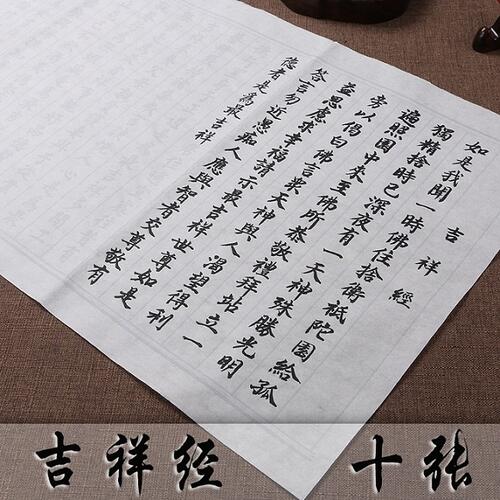 吉祥經
如是我聞一時佛住捨衛祗陀園給孤
獨精捨時已深夜有一天神殊勝光明
遍照園中來至佛所恭敬禮拜站立一
旁以偈白佛言眾天神與人渴望得利
益思慮求幸福請示最吉祥世尊如是
答言勿近愚痴人應與智者交尊敬有
德者是為最吉祥
吉祥经 十张